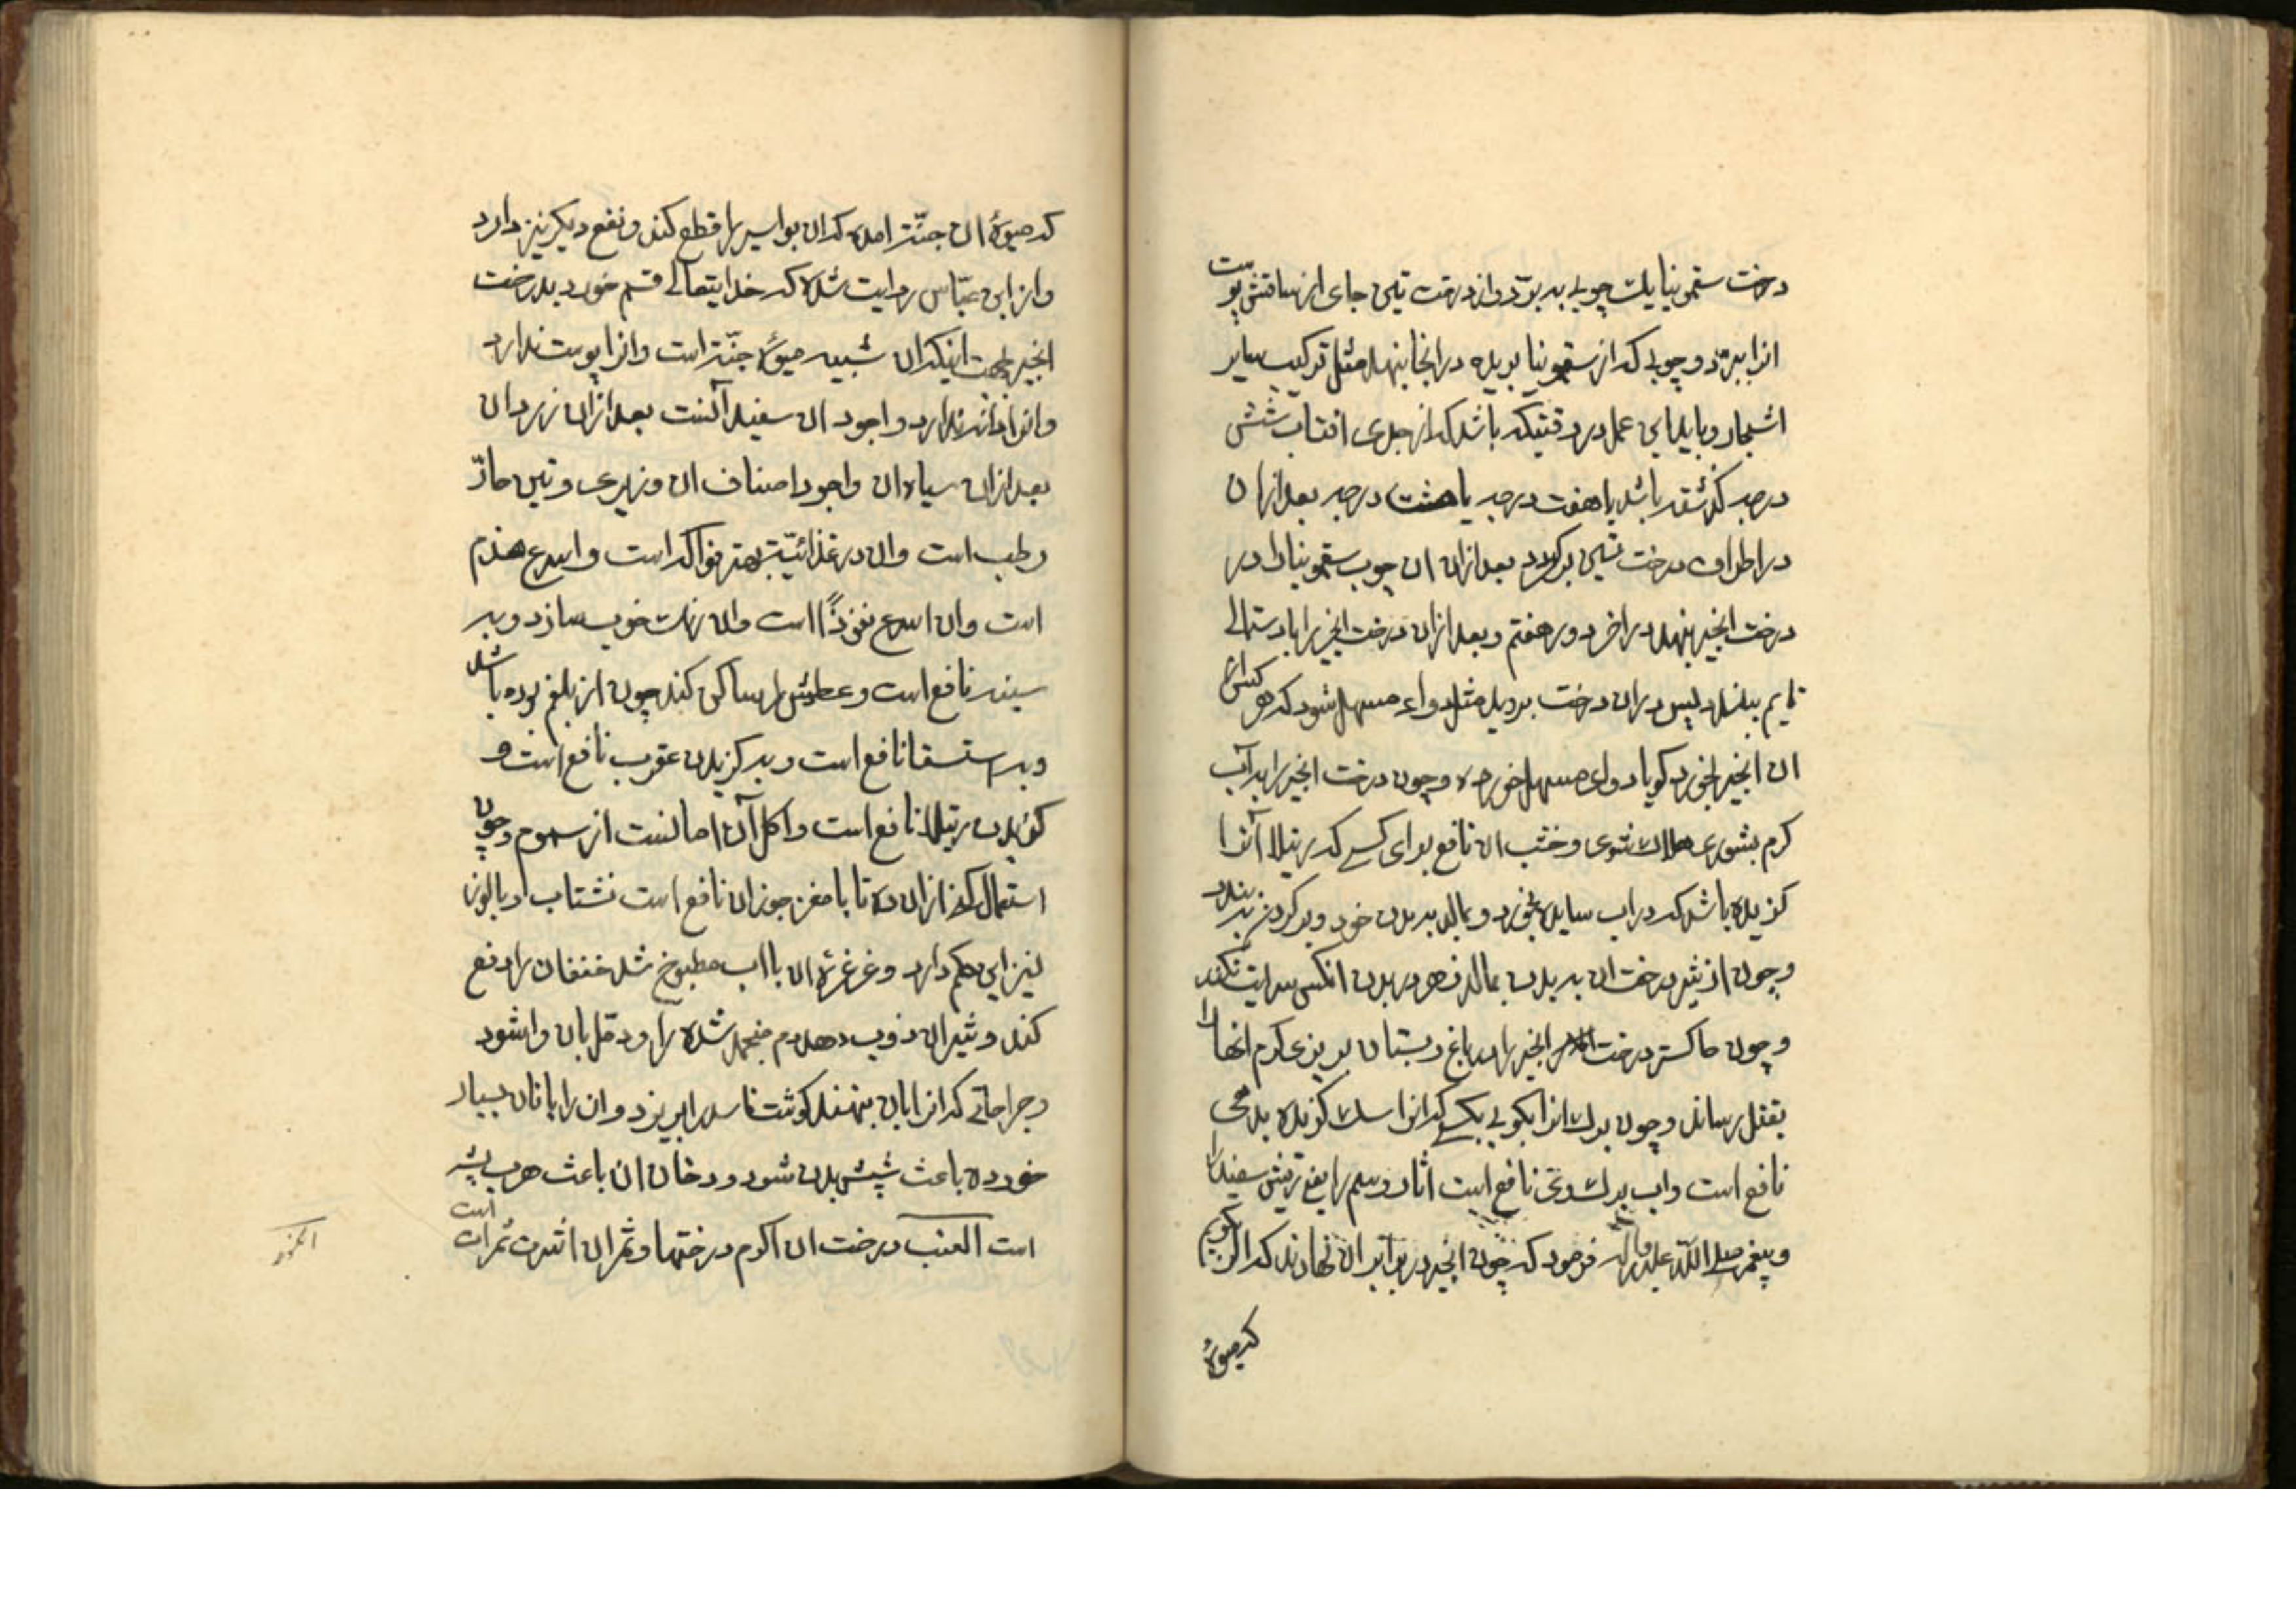 درخت سقمونیا یک چوبی ببرد و از درخت تین جای از ساقش پوست
انرا ببرد و چوبی که از سقمونیا بریده در انجا بنهد مثل ترکیب سایر
اشجار و باید این عمل در وقتیکه باشد که از جدی افتاب شش
درجه کذشته باشد یا هفت درجه یا هشت درجه بعد ازان
در اطراف درخت تین بر کردد بعد ازان ان چوب سقمونیا را در
درخت انجیر بنهد در اخر دور هفتم و بعد ازان درخت انجیر را بادستمالی
به بندد پس دران درخت بروید مثل دواء مسهل شود که هر کس از
ان انجیر بخورد کویا دوای مسهل خورده و چون درخت انجیر را به آب
کرم بشوری هلاک شوی و خشب ان نافع برای کسی که رتیلا آنرا
کزیده باشد که در اب ساید بخورد و بمالد به بدن خود و بر کردن به بندد
و چون از شیر درخت ان به بدن بمالد زهر در بدن انکس سرایت نکند
و چون خاکستر درخت انجیر را در باغ و بستان بریزی کرم انها را
بقتل رساند و چون برک انرا بکوبی بکسی که انرا سک کزیده بدهی
نافع است و اب برک وی نافع است اثار وسم را یعنی
و پیغمبر صلی الله علیه و اله فرمود که چون انجیر در برابر ان نهادند که اکر بکویم
که میوهٔ
که میوهٔ ان جنّت امده که ان بواسیر را قطع کند و نفع دیکر نیز دارد
و از ابن عبّاس روایت شده که خدایتعالی قسم خورد بدرخت
انجیر بجهت اینکه ان شبیه میوهٔ جنّت است و انرا پوست ندارد
و انرا دانه ندارد و اجود ان سفید آنست بعد ازان زرد ان
بعد ازان سیاه ان و اجود اصناف ان وزیری و تین حارّ
رطب است و ان در غذائیّت بهتر فواکه است و اسرع هضم
است و ان اسرع نفوذًا است و ان رنک خوب سازد و به
سینه نافع است و عطش را ساکن کند چون از بلغم بوده باشد
و به استسقا نافع است و به کزیدن عقرب نافع است و
کزیدن رتیلا نافع است و اکل آن امانست از سموم و چون
استعمال کند ازان ده تا با مغز جوزان نافع است نشتاب و بالوز
نیز این حکم دارد و غرغرهٔ ان با اب مطبوخ شد خنقان را دفع
کند و شیر ان ذوب دهد دم منجمد شده را و دمل بان وا شود
و جراحاتی که انرا بان بنهند کوشت فاسد را بریزد و ان را با نان بسیار
خورده باعث شپش بدن شود و دخان ان باعث هرب پشه
است العنب درخت ان اکرم درختها و ثمر ان اشرف ثمرات است